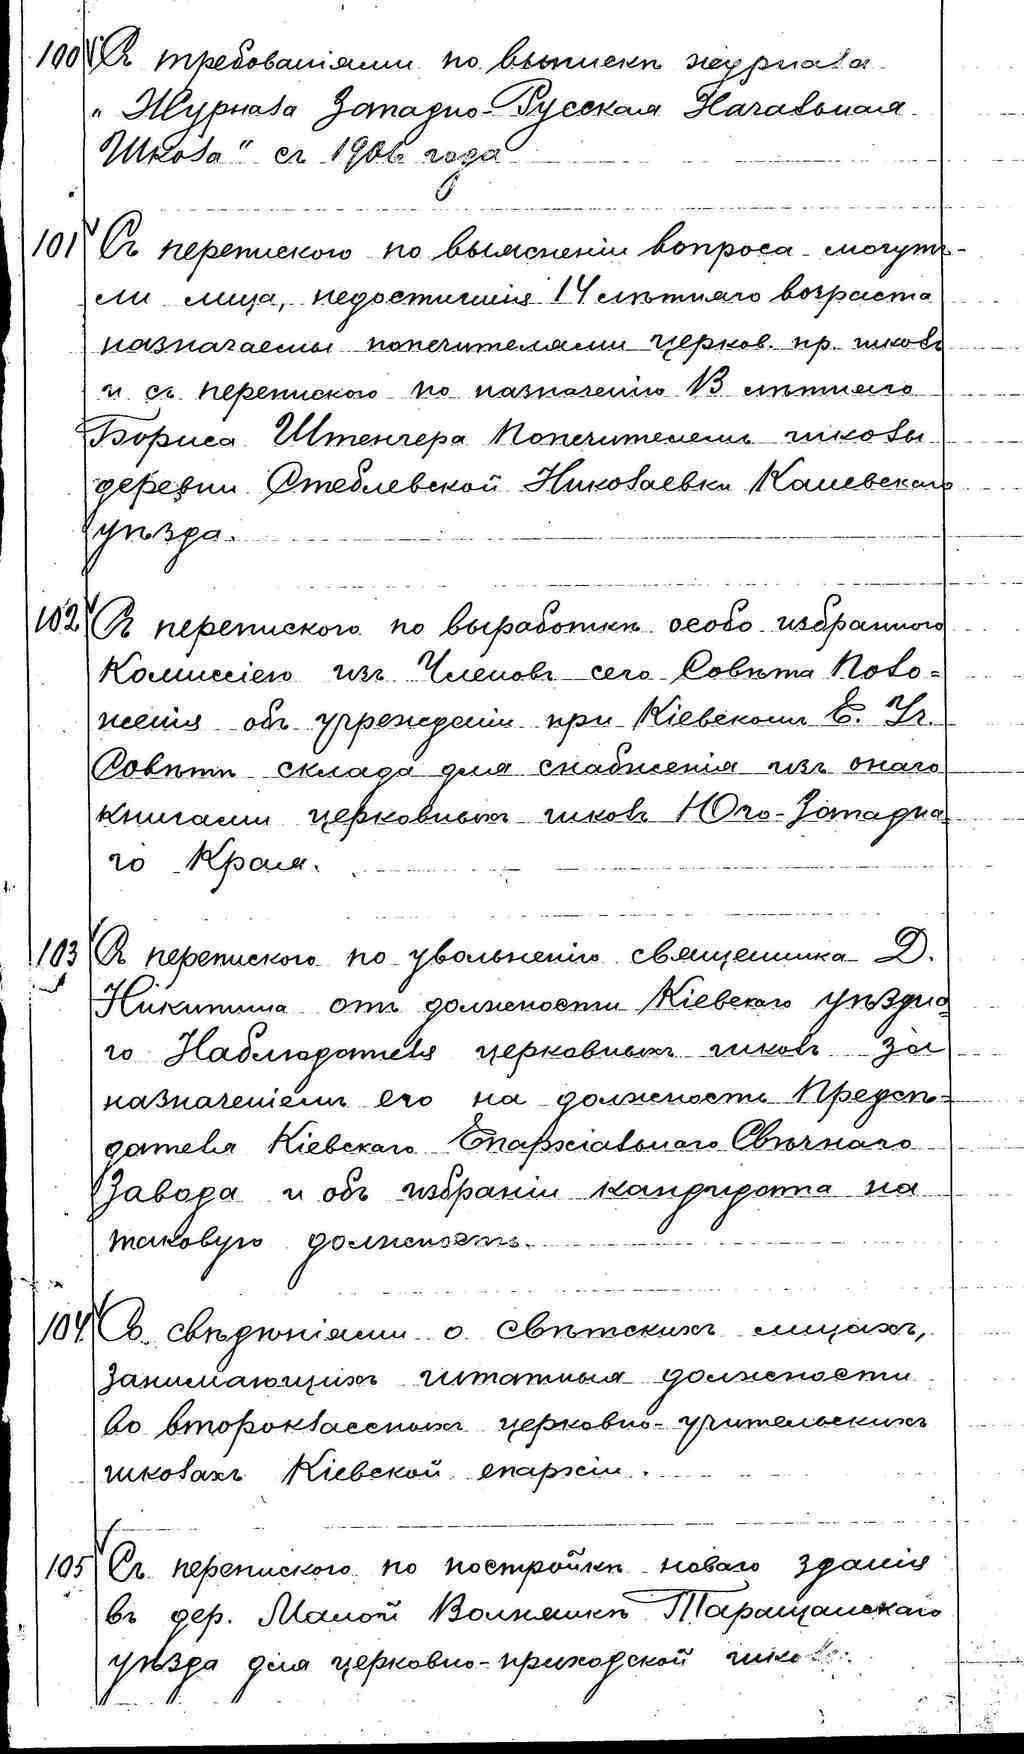 100 Съ требованіями по выпискѣ журнала
„Журнала Западно-Русская Начальная
Школа" съ 1906 года
101 Съ перепискою по выясненіи вопроса могутъ-
ли лица, недостигшія 14 лѣтняго возраста
назначаемы попечителями церков. пр. школъ
и съ перепискою по назначенію 13 лѣтняго
Бориса Штенгера Попечителемъ школы
деревни Стеблевской Николаевки Каневскаго
уѣзда.
102 Съ перепискою по выработкѣ особо избранною
Комиссіею изъ Членовъ сего Совѣта Поло=
женія объ учрежденіи при Кіевскомъ Е. Уч.
Совѣтѣ склада для снабженія изъ онаго
книгами церковныхъ школъ Юго-Западна
го Края.
103 Съ перепискою по увольненію священника Д.
Никитина отъ должности Кіевскаго уѣздна
го Наблюдателя церковныхъ школъ за
назначеніемъ его на должность Предсѣ=
дателя Кіевскаго Епархіальнаго Свѣчнаго
Завода и объ избраніи кандидата на
таковую должность.
104 Со свѣдѣніями о свѣтскихъ лицахъ,
занимающихъ штатныя должности
во второклассныхъ церковно-учительскихъ
школахъ Кіевской епархіи.
105 Съ перепискою по постройкѣ новаго зданія
въ дер. Малой Волнянкѣ Таращанскаго
уѣзда для церковно-приходской школы.